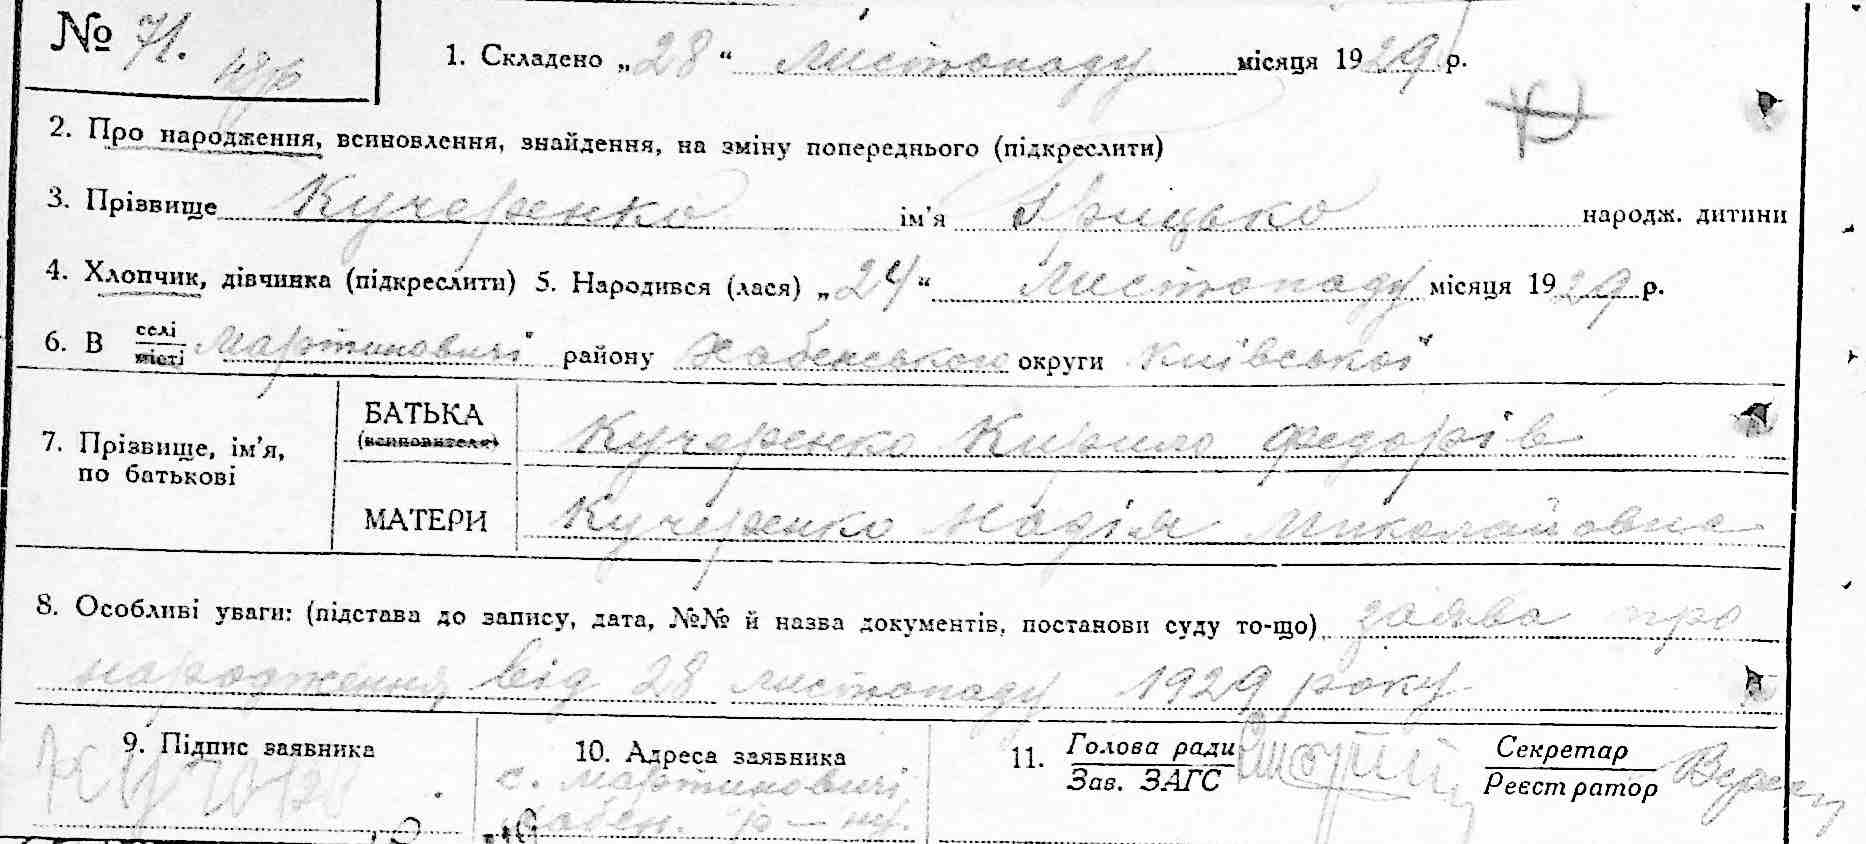 № 71.
1. Складено „28“ Листопаду місяця 1929 р.
2. Про народження, всиновлення, знайдення, на зміну попереднього (підкреслити)
3. Прізвище Кучеренко ім’я Грицько народж. дитини
4. Хлопчик, дівчинка (підкреслити) 5. Народився (лася) „24“ Листопаду місяця 1929 р.
6. В селі місті Мартиновичі району Хабенського округи Київської
7. Прізвище, ім’я, по батькові
БАТЬКА (всиновителя) Кучеренко Кирило Федорів
МАТЕРИ Кучеренко Надія Миколайовна
8. Особливі уваги: (підстава до запису, дата, №№ й назва документів, постанови суду то-що) заява про
народження від 28 листопаду 1929 року
9. Підпис заявника
10. Адреса заявника
с. Мартиновичі
Хабен. р-ну.
11. Голова ради
Зав. ЗАГС
Секретар
Реєстратор